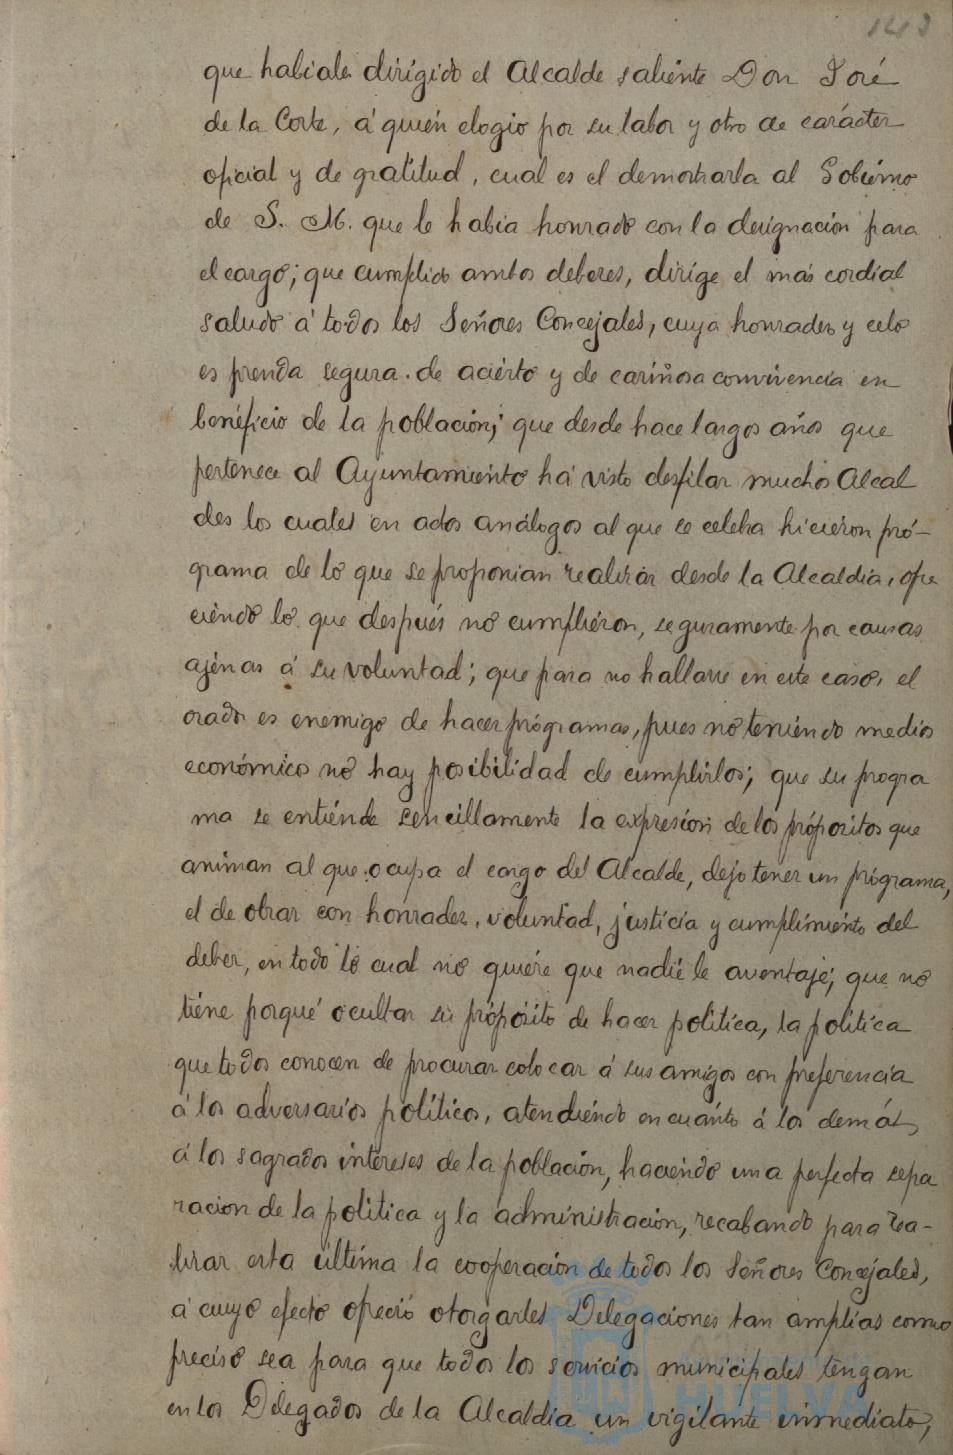 143
que habiale dirigido el Alcalde saliente Don José
de la Corte, á quién elogio por su labor y otro de carácter
oficial y de gratitud, cual es el demostrarla al Gobierno
de S. M. que le habia honrado con la designación para
el cargo; que cumplido ambos deberes, dirige el más cordial
saludo á todos los Señores Concejales, cuya honradez y celo
es prenda segura de acierto y de cariñosa convivencia en
beneficio de la población; que desde hace largos años que
pertenece al Ayuntamiento há visto desfilar muchos Alcal
des los cuales en actos análogos al que se celebra hicieron pró-
grama de lo que se proponian realizar desde la Alcaldia, ofre
ciendo lo que después no cumplieron, seguramente por causas
ajenas á su voluntad; que para no hallarse en este caso, el
orador es enemigo de hacer prógramas, pues no teniendo medios
económicos no hay posibilidad de cumplirlos; que su progra
ma se entiende sencillamente la expresión de los própositos que
animan al que ocupa el cargo del Alcalde, dejo tener un prógrama,
el de obrar con honradez, voluntad, justicia y cumplimiento del
deber, en todo lo cual no quiere que nadie le aventaje; que no
tiene porqué ocultar su própósito de hacer politica, la politica
que todos conocen de procurar colocar á sus amigos con preferencia
á los adversarios politicos, atendiendo en cuánto á los demás,
á los sagrados intereses de la población, haciendo una perfecta sepa
racion de la politica y la administración, recabando para rea-
lizar esta última la cooperación de todos los Señores Concejales,
á cuyo efecto ofreció otorgarles Delegaciones tan amplias como
preciso sea para que todos los servicios municipales tengan
en los Delegados de la Alcaldia un vigilante inmediato,
HUELVA